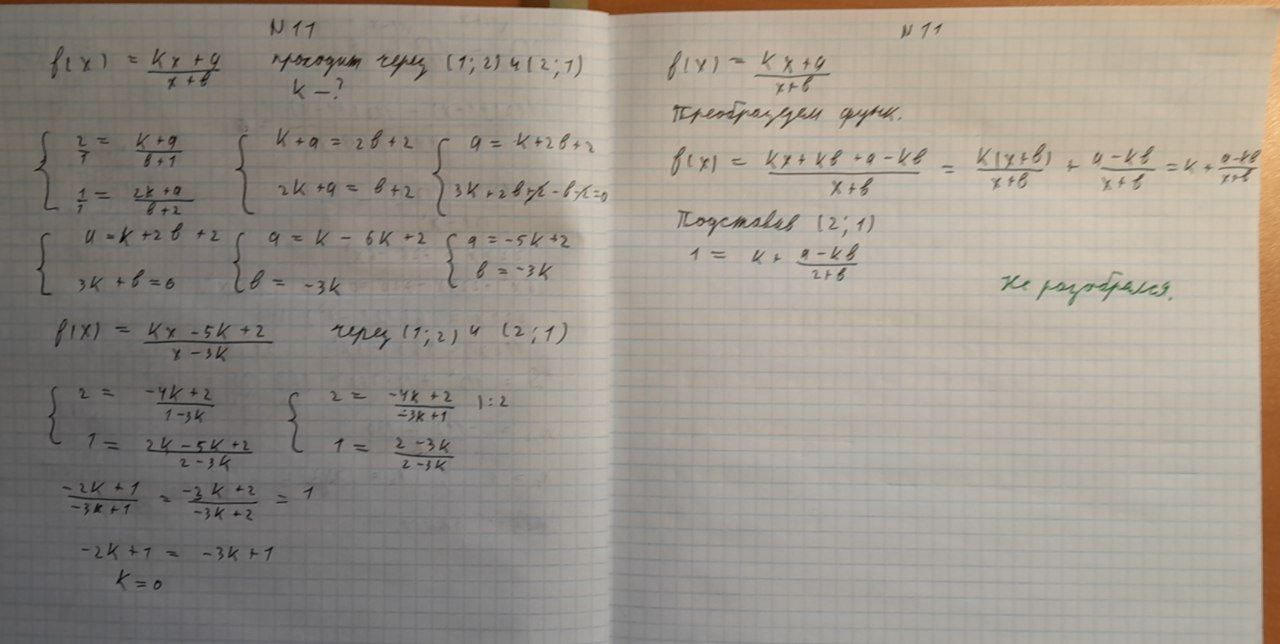 N 11
f(x) = (kx + a)/(x + b) проходит через (1; 2) и (2; 1)
k – ?
{ 2/1 = (k + a)/(b + 1) { k + a = 2b + 2 { a = k + 2b + 2
1/1 = (2k + a)/(b + 2) 2k + a = b + 2 3k + 2b + 2 - b - 2 = 0
{ a = k + 2b + 2 { a = k - 6k + 2 { a = -5k + 2
3k + b = 0 b = -3k b = -3k
f(x) = (kx - 5k + 2)/(x - 3k) через (1; 2) и (2; 1)
{ 2 = (-4k + 2)/(1 - 3k) { 2 = (-4k + 2)/(-3k + 1) ) : 2
1 = (2k - 5k + 2)/(2 - 3k) 1 = (2 - 3k)/(2 - 3k)
(-2k + 1)/(-3k + 1) = (-3k + 2)/(-3k + 2) = 1
-2k + 1 = -3k + 1
k = 0
N 11
f(x) = (kx + a)/(x + b)
Преобразуем функ.
f(x) = (kx + kb + a - kb)/(x + b) = k(x + b)/(x + b) + (a - kb)/(x + b) = k + (a - kb)/(x + b)
Подставив (2; 1)
1 = k + (a - kb)/(2 + b)
Не разобрался.